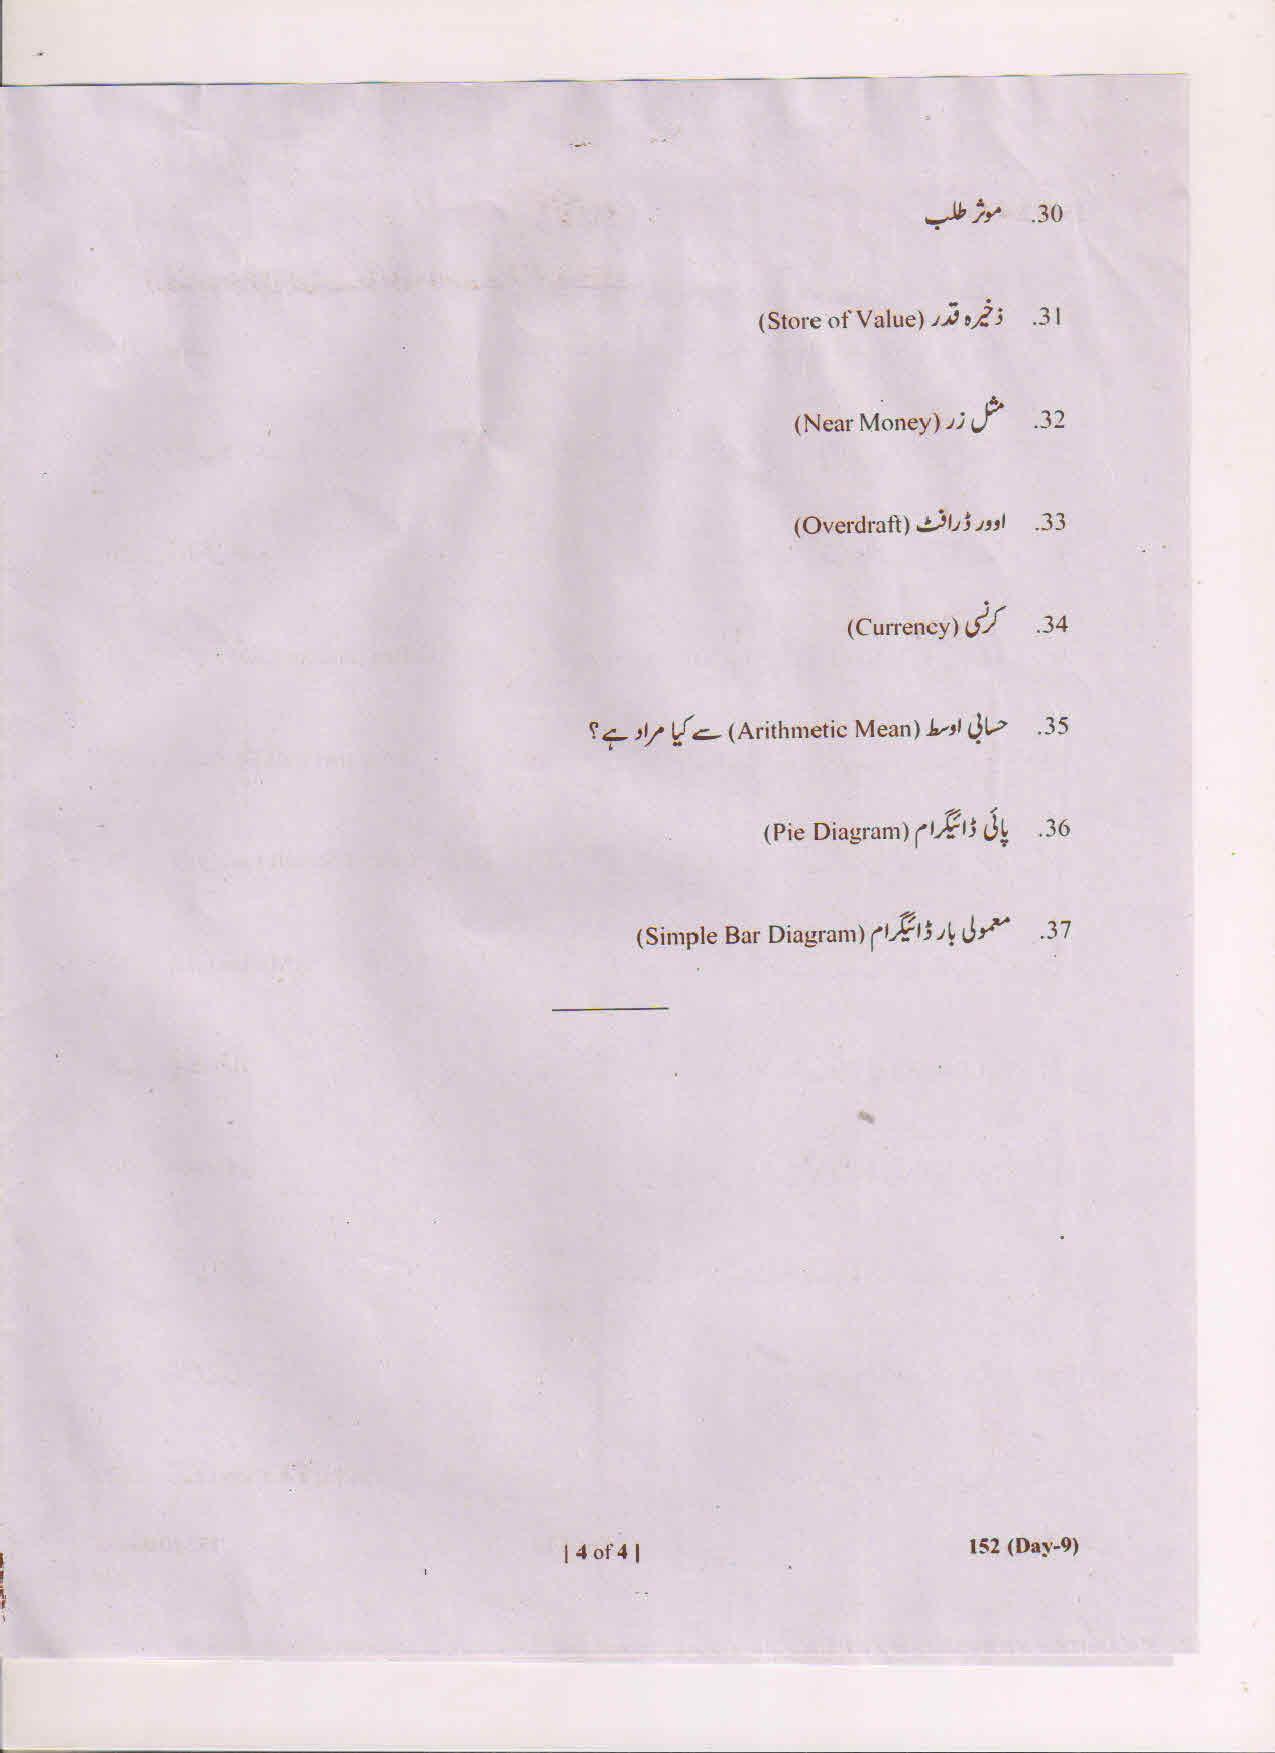 30. موثر طلب
31. ذخیرہ قدر (Store of Value)
32. مثل زر (Near Money)
33. اوور ڈرافٹ (Overdraft)
34. کرنسی (Currency)
35. حسابی اوسط (Arithmetic Mean) سے کیا مراد ہے؟
36. پائی ڈائیگرام (Pie Diagram)
37. معمولی بار ڈائیگرام (Simple Bar Diagram)
| 4 of 4 | 152 (Day-9)